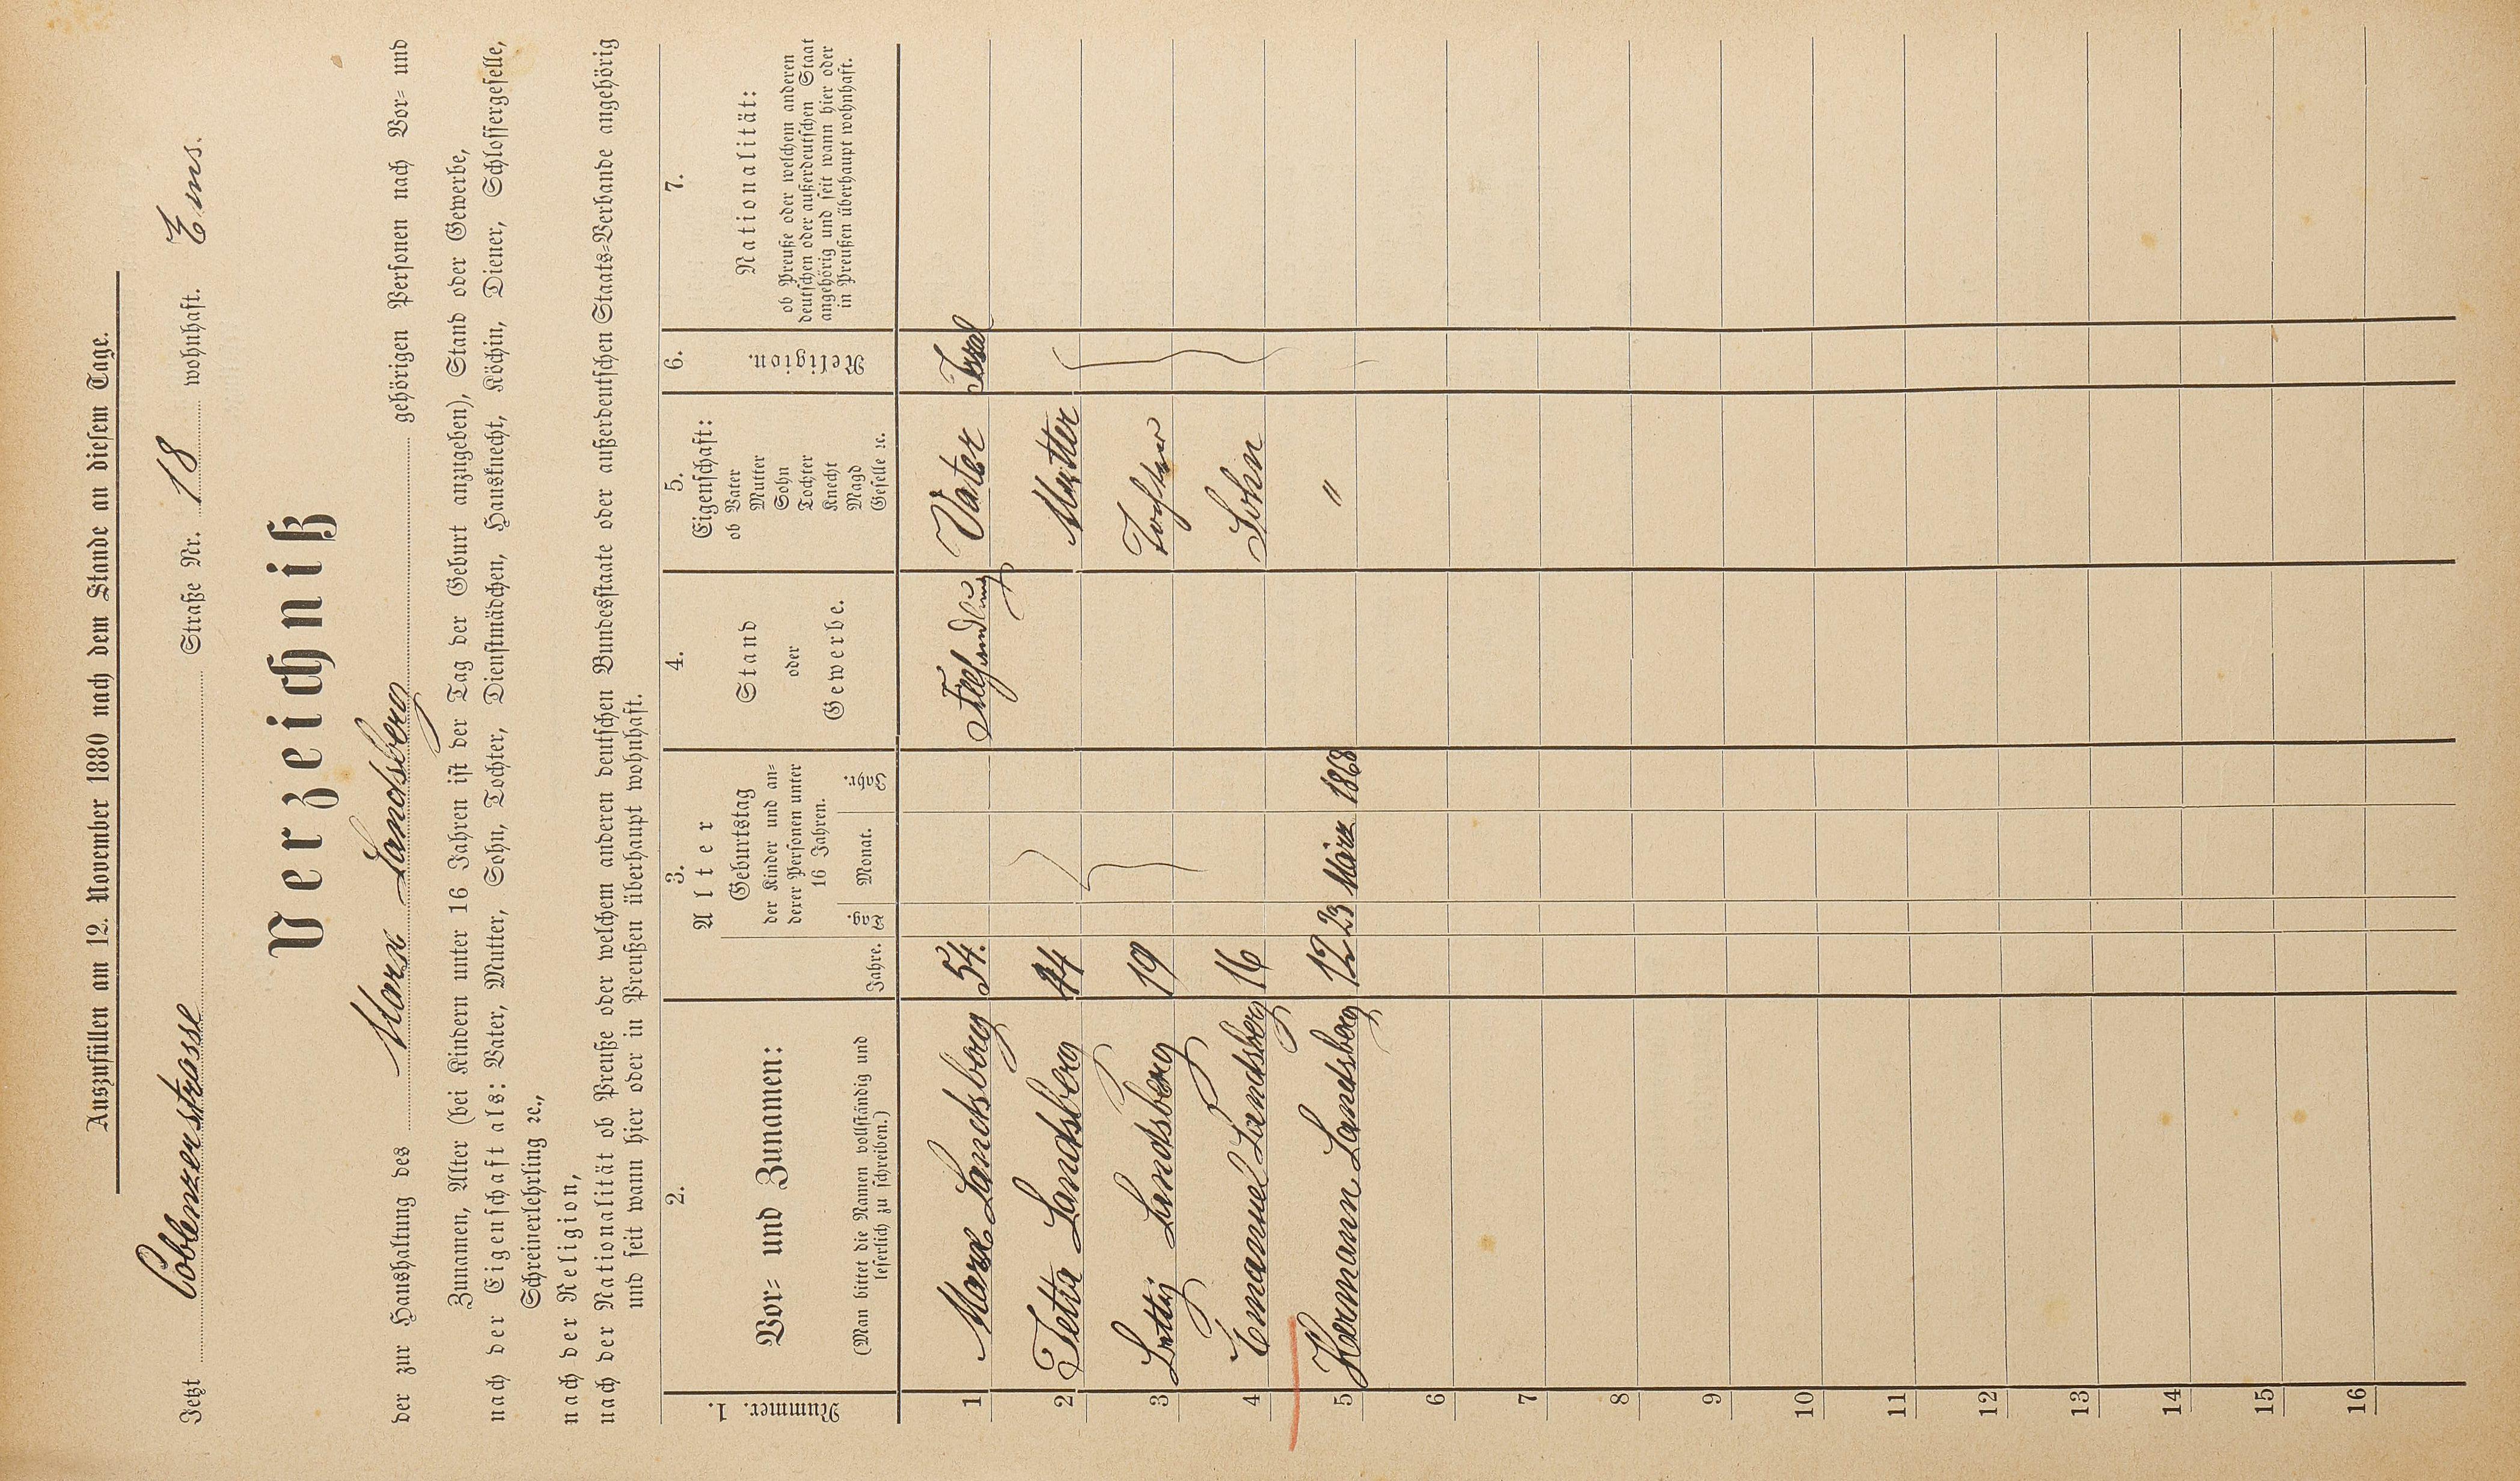 Auszufüllen am 12. November 1880 nach dem Stande an diesem Tage.
Jetzt Coblenzerstrasse Straße Nr. 18 wohnhaft. Ems.
Verzeichniß
der zur Haushaltung des Marx Landsberg gehörigen Personen nach Vor- und
Zunamen, Alter (bei Kindern unter 16 Jahren ist der Tag der Geburt anzugeben), Stand oder Gewerbe,
nach der Eigenschaft als: Vater, Mutter, Sohn, Tochter, Dienstmädchen, Hausknecht, Köchin, Diener, Schlossergeselle,
Schreinerlehrling ꝛc.,
nach der Religion,
nach der Nationalität ob Preuße oder welchem anderen deutschen Bundesstaate oder außerdeutschen Staats-Verbande angehörig
und seit wann hier oder in Preußen überhaupt wohnhaft.
Nummer. 1.
2.
Vor- und Zunamen:
(Man bittet die Namen vollständig und
leserlich zu schreiben.)
3.
Alter
Jahre.
Geburtstag
der Kinder und an-
derer Personen unter
16 Jahren.
Tag. Monat. Jahr.
4.
Stand
oder
Gewerbe.
5.
Eigenschaft:
ob Vater
Mutter
Sohn
Tochter
Knecht
Magd
Geselle ꝛc.
6.
Religion.
7.
Nationalität:
ob Preuße oder welchem anderen
deutschen oder außerdeutschen Staat
angehörig und seit wann hier oder
in Preußen überhaupt wohnhaft.
1 Marx Landsberg 54. Vater Isral
2 Landsberg 44 Mutter
3 Landsberg 19 Tochter
4 Emanuel Landsberg 16 Sohn
5 Hermann Landsberg 12 23 März 1868 "
6
7
8
9
10
11
12
13
14
15
16